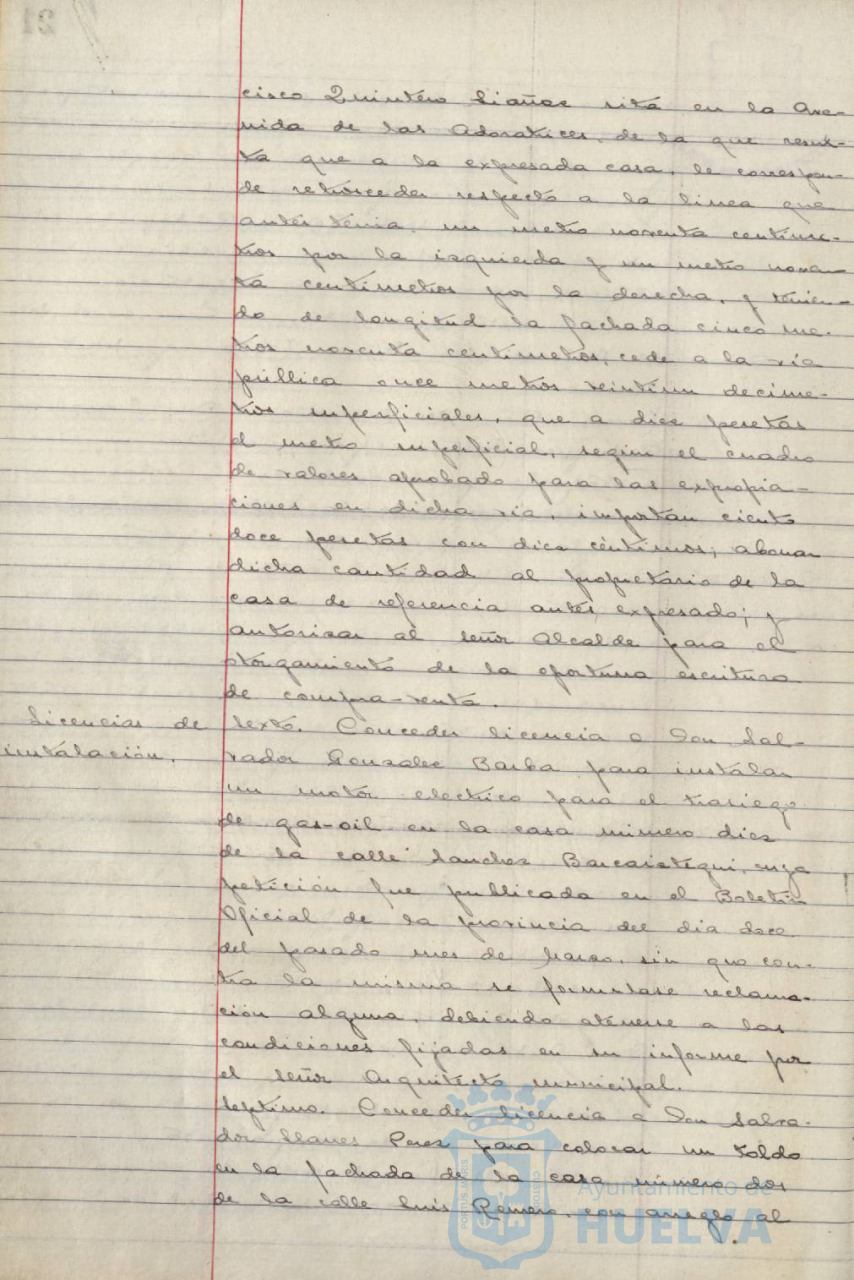 21
cisco Quintero Liañez sita en la Ave-
nida de las Adoratices, de la que resul-
ta que a la expresada casa, le correspon-
de retrosceder respecto a la linea que
antes tenia, un metro noventa centime-
tros por la izquierda y un metro noven-
ta centimetros por la derecha, y tenien-
do de longitud la fachada cinco me-
tros noventa centimetros, cede a la via
pública once metros veintiun decime-
tros superficiales, que a diez pesetas
el metro superficial, según el cuadro
de valores aprobado para las expropia-
ciones en dicha via, importan ciento
doce pesetas con diez céntimos; abonar
dicha cantidad al propietario de la
casa de referencia antes expresado; y
autorizar al señor Alcalde para el
otorgamiento de la oportuna escritura
de compra-venta.
Licencias de
instalación.
Sexto. Conceder licencia a Don Sal-
vador Gonzalez Barba para instalar
un motor electrico para el trasiego
de gas-oil en la casa número diez
de la calle Sanchez Barcaiztegui, cuya
petición fue publicada en el Boletin
Oficial de la provincia del dia doce
del pasado mes de Marzo, sin que con-
tra la misma se formulase reclama-
ción alguna, debiendo atenerse a las
condiciones fijadas en su informe por
el señor Arquitecto municipal.
Septimo. Conceder licencia a Don Salva-
dor Llanes Perez para colocar un toldo
en la fachada de la casa número dos
de la calle Luis Romero, con arreglo al
Ayuntamiento de
HUELVA